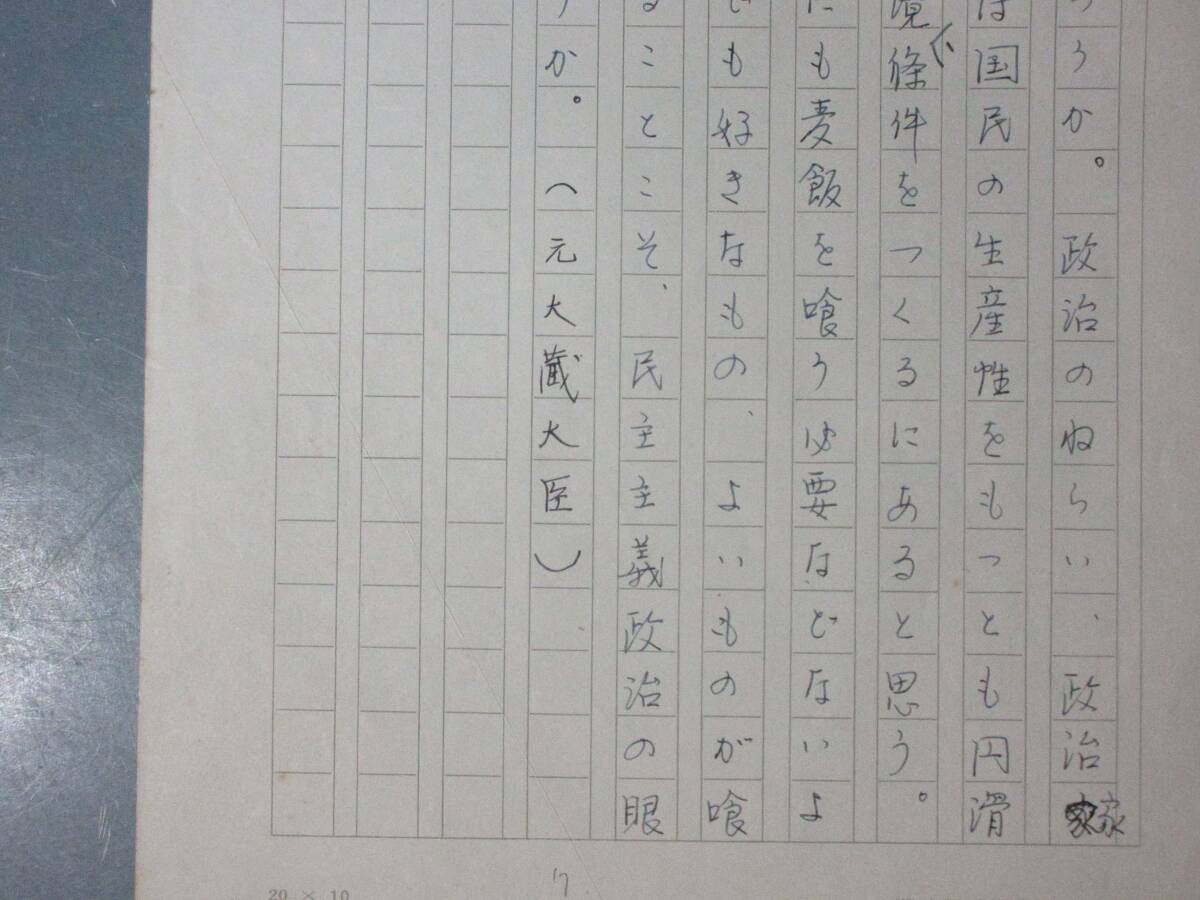 うか。　政治のねらい、政治家
は国民の生産性をもっとも円滑
境條件をつくるにあると思う。
にも麦飯を喰う必要などないよ
でも好きなもの、よいものが喰
ることこそ、民主主義政治の眼
うか。（元大蔵大臣）
7
20 × 10